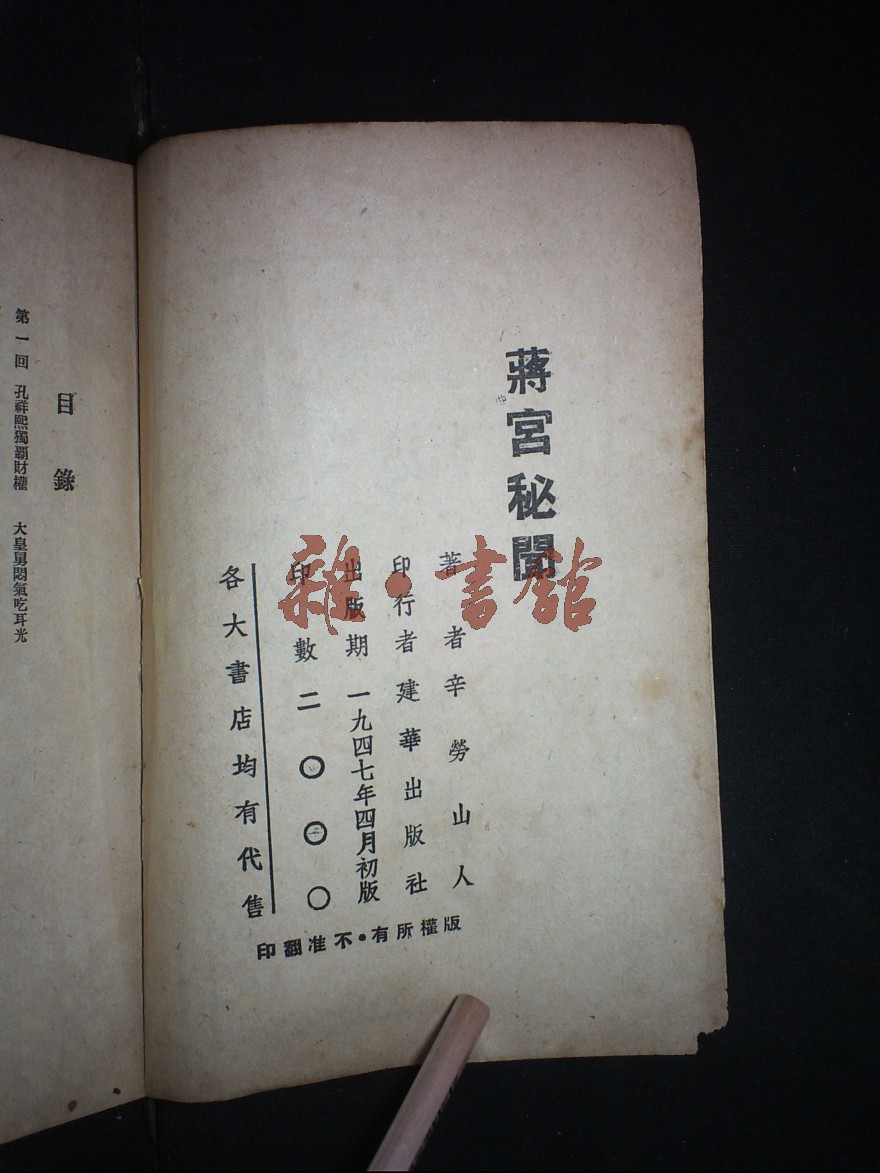 蔣宮秘聞
著者辛勞山人
印行者建華出版社
出版期一九四七年四月初版
印數二〇〇〇
各大書店均有代售
版權所有·不准翻印
目錄
第一回 孔祥熙獨霸財權 大皇舅悶氣吃耳光
雜·書館